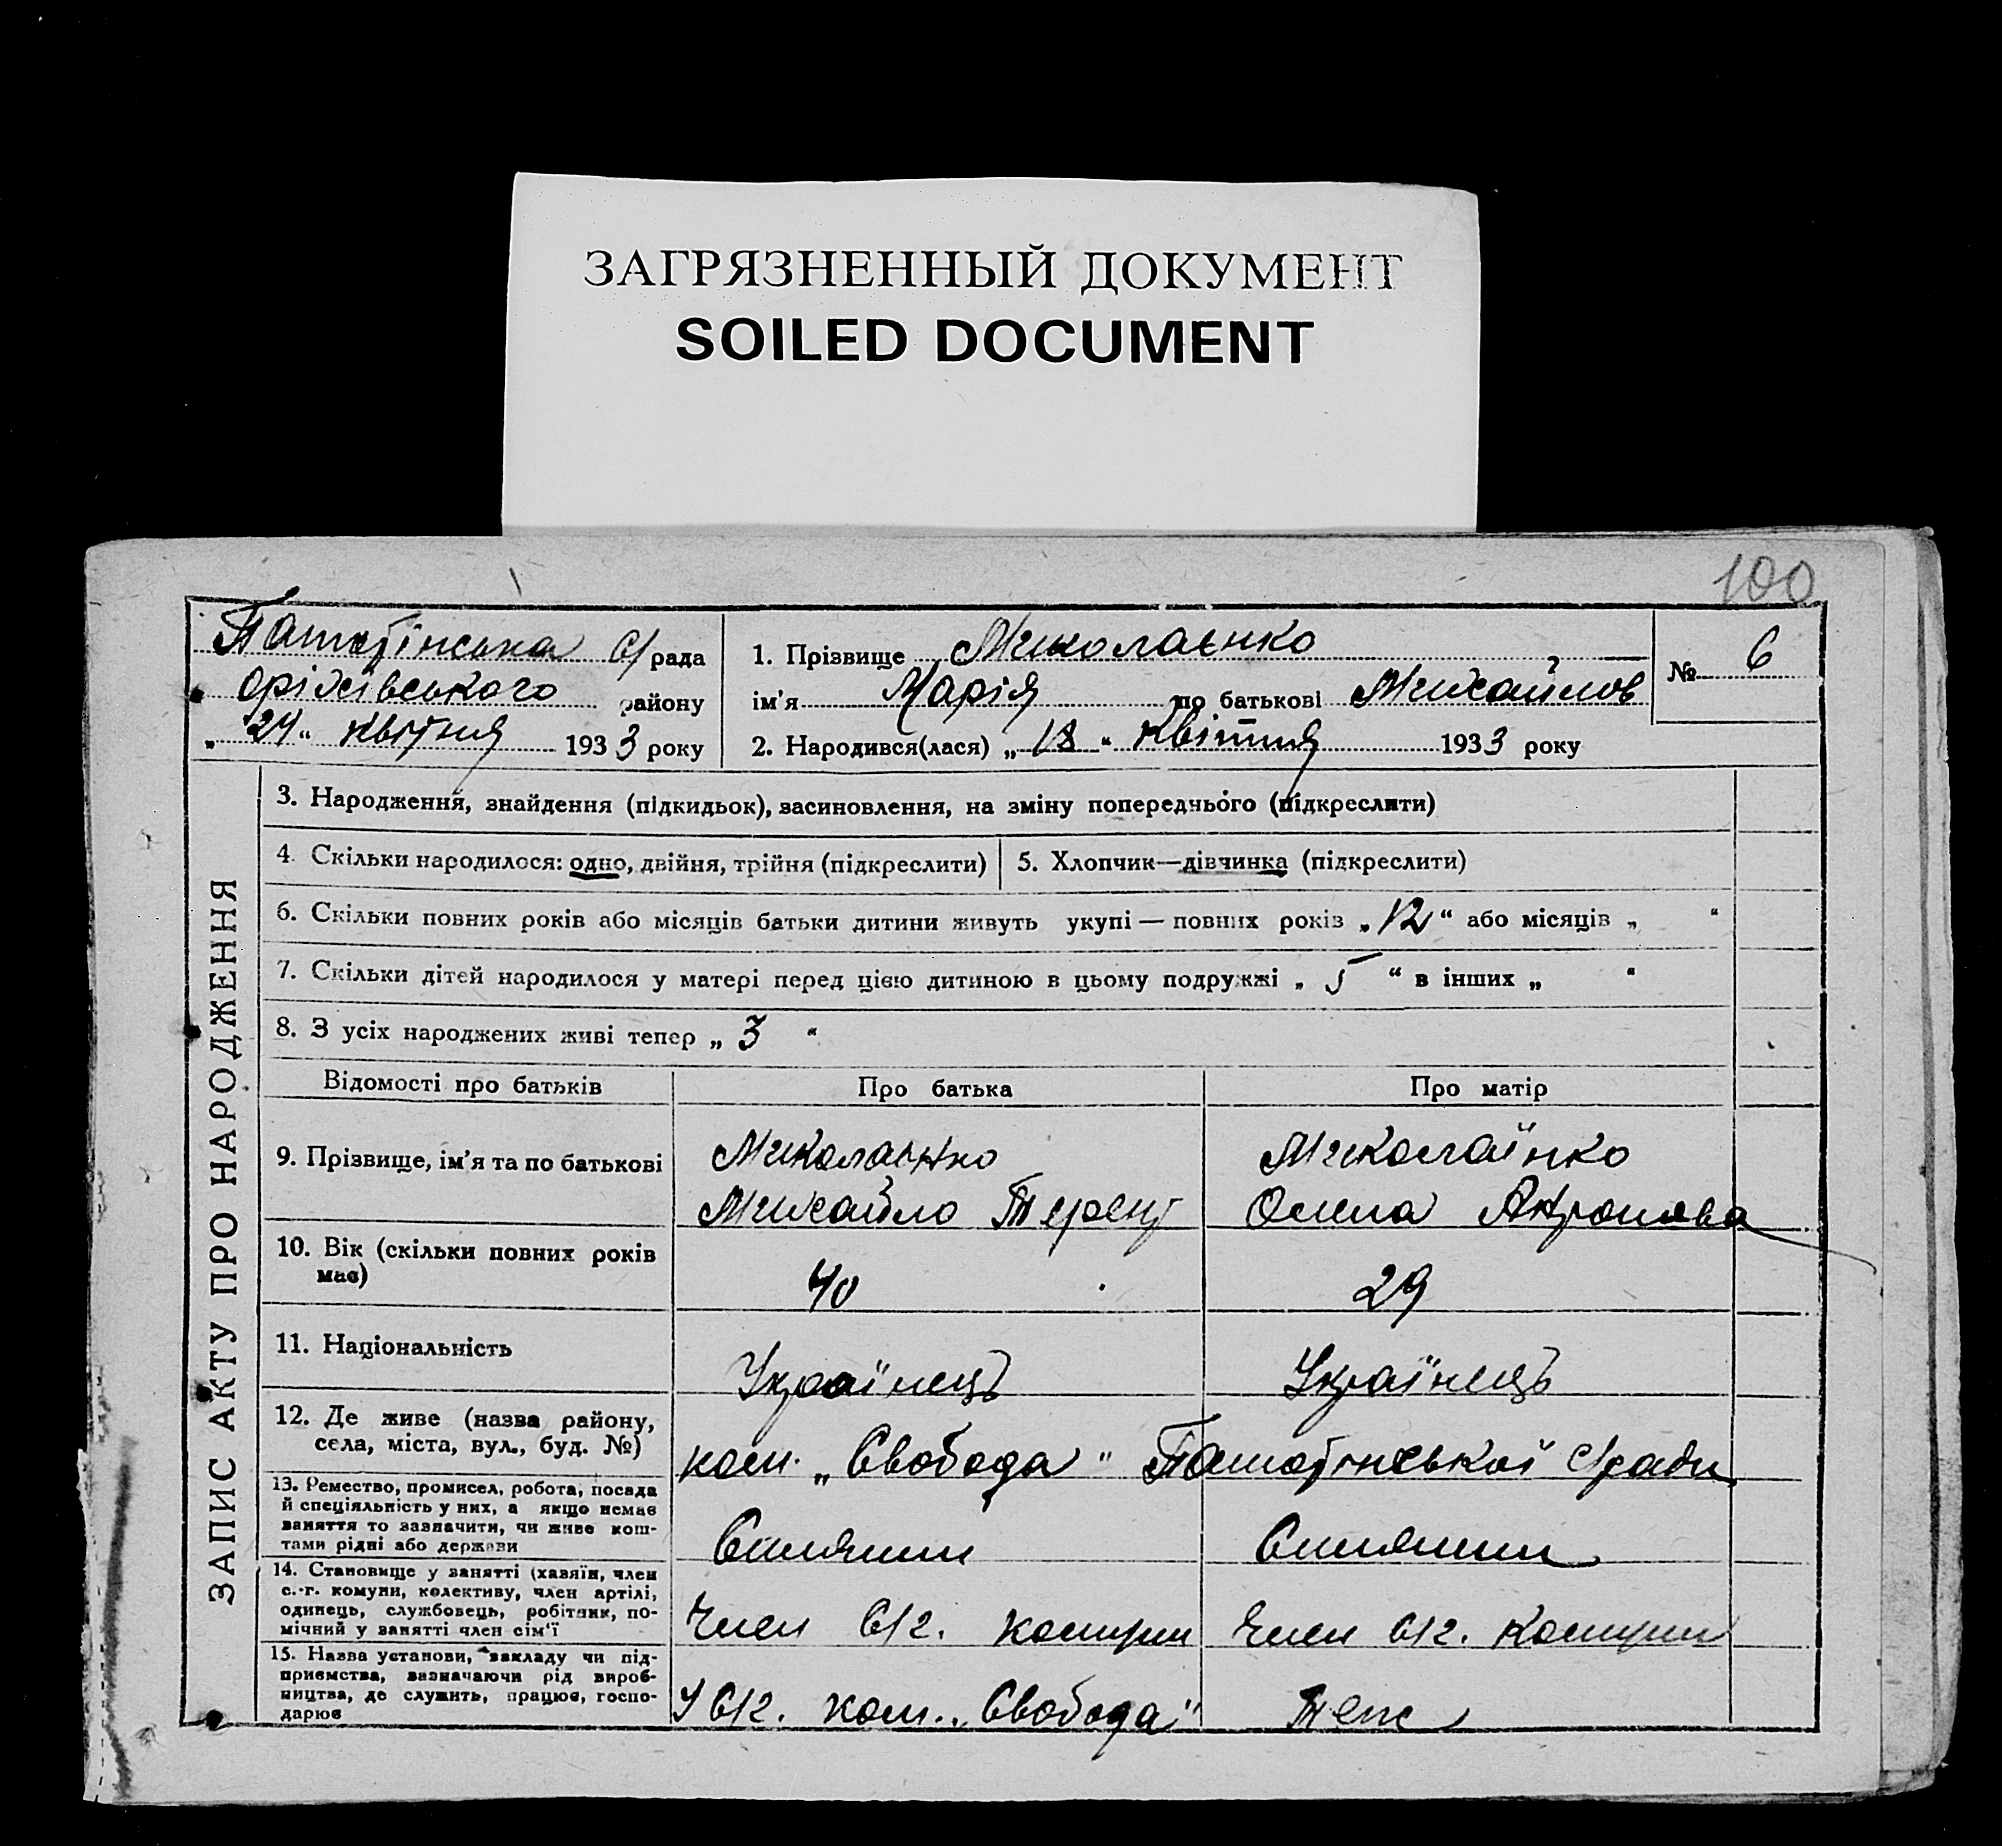 ЗАГРЯЗНЕННЫЙ ДОКУМЕНТ
SOILED DOCUMENT
100
с/рада
Оріхівського району
„24" квітня 1933 року
1. Прізвище Миколаєнко
ім'я Марія по батькові Михайлов
2. Народився(лася) „18" квітня 1933 року
№ 6
ЗАПИС АКТУ ПРО НАРОДЖЕННЯ
3. Народження, знайдення (підкидьок), засиновлення, на зміну попереднього (підкреслити)
4. Скільки народилося: одно, двійня, трійня (підкреслити)
5. Хлопчик—дівчинка (підкреслити)
6. Скільки повних років або місяців батьки дитини живуть укупі — повних років „12" або місяців „ "
7. Скільки дітей народилося у матері перед цією дитиною в цьому подружжі „5" в інших „ "
8. З усіх народжених живі тепер „3"
Відомості про батьків
Про батька
Про матір
9. Прізвище, ім'я та по батькові
Миколаєнко
Михайло Терент
Миколаїнко
Олена
10. Вік (скільки повних років
має)
40
29
11. Національність
Українець
Українець
12. Де живе (назва району,
села, міста, вул., буд. №)
ком. „Свобода" с/ради
13. Ремество, промисел, робота, посада
й спеціяльність у них, а якщо немає
заняття то зазначити, чи живе кош-
тами рідні або держави
Селянин
Селянин
14. Становище у занятті (хазяїн, член
с.-г. комуни, колективу, член артілі,
одинець, службовець, робітник, по-
мічний у занятті член сім'ї
Член с/г. комуни
Член с/г. комуни
15. Назва установи, закладу чи під-
приємства, зазначаючи рід вироб-
ництва, де служить, працює, госпо-
дарює
У с/г. ком. „Свобода"
Теж